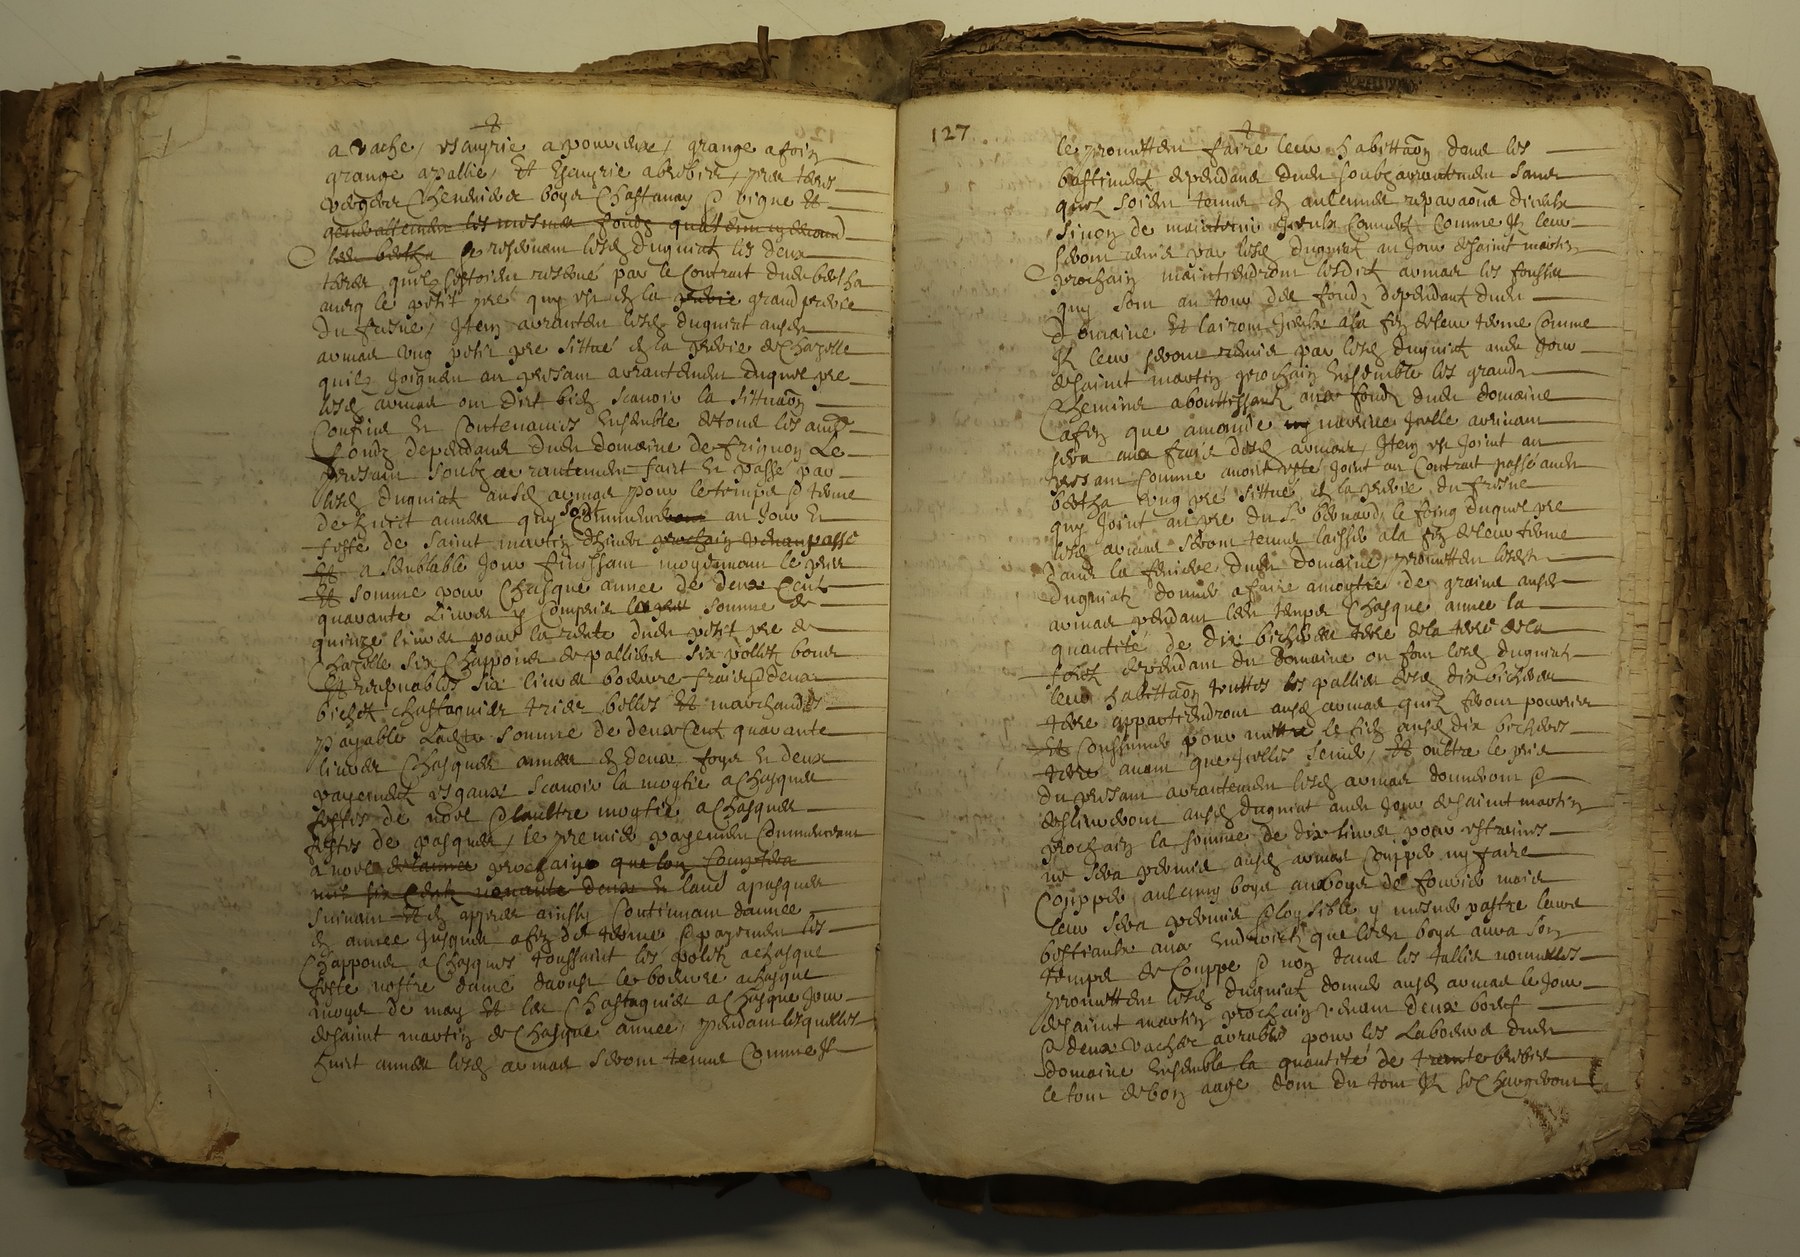 a vache, escuyrie a pourceaux, grange a foin
grange a pallie, et escuyrie a brebis, prés terres
vergers cheneviers boys chastanay et vigne et
generallement les mesmes fonds
led bertha se reservant lesd duguiat les deux
terres quilz sestoient reservé par le contrat dud bertha
avecq le petit pré quy est en la grand prerie
du fresne, Item arrantent lesd duguiat ausd
armas ung petit pre sittué en la prerie de chazelle
quilz joignent au present arrantement duquel pre
lesd armas ont dict bien scavoir la sittuaon
confins et contenances ensemble de tous les aultres
fonds dependans dud domaine de frignon Le
present soubz arrantement faict et passé par
lesd duguiat ausd armas pour le temps et terme
de huict annees quy sont commencees au jour et
feste de saint martin dhiver passé
et a semblable jour finissant moyennant le pris
et somme pour chasque annee de deux cent
quarante livres y compris la somme de
quinze livres pour la rente dud petit pre de
chazelle six chappons de pallier six polletz bons
et receptables six livres bon beurre frais et deux
bichetz chastagnies tries belles et marchandes
payable ladite somme de deux cent quarante
livres chasques annees en deux foys et deux
payementz esgaux scavoir la moytie a chasques
festes de noel et laultre moytié a chasques
festes de pasques, le premier payement commencant
a noel prochain
laud a pasques
suivant et en appres ainsy continuant dannee
en annee jusques a fin de terme et payement les
chappons a chasques toussaint les poletz a chasque
feste nostre dame daoust le beurre a chasque
moys de may et les chastagnies a chasque jour
de saint martin de chasque annee, pendant lesquelles
huict annees lesd armas seront tenus comme Ilz
127
le promettent faire leur habittaon dans les
bastiments dependans dud soubzarrantement sans
quilz soient tenus en aulcunes reparaons diceulx
sinon de maintenir iceulx couverts comme Ilz leur
seront remis par lesd duguiat au jour de saint martin
prochain maintiendront lesdictz armas les fosses
quy sont au tour des fondz dependant dud
domaine et lairont iceulx a la fin de leur terme comme
Ilz leur seront remis par lesd duguiat aud jour
de saint martin prochain ensemble les grands
chemins abouttissantz aux fondz dud domaine
afin que amande ny navienne icelle advenant
sera aux frais desd armas, Item est joint au
present comme avoit esté joint au contrat passé aud
bertha ung pré sittué en la prerie du fresne
quy joint au pre du Sr bernard, le foing duquel pre
lesd armas seront tenus laisser a la fin de leur terme
dans la feniere dud domaine, promettent lesd
duguiat donner a faire a moytie de grains ausd
armas pendant led temps chasque annee la
quantité de dix bicherees terre de la terre de la
font dependant du domaine ou font lesd duguiat
leur habittaon touttes les pallies desd dix bicherees
terre appartiendront ausd armas quilz feront pourrir
et consumer pour mettre le fien ausd dix bicherees
terre avant que icelles semer, et oultre le pris
du present arrantement lesd armas donneront et
deslivreront ausd duguiat aud jour de saint martin
prochain la somme de dix livres pour estreines
ne sera permis ausd armas coupper ny faire
coupper aulcung boys au boys de fourier mais
leur sera permis et loysible y mener paistre leurs
bestiaulx aux endroictz que led boys aura son
temps de couppe et non dans les tallies nouvelles
promettent lesd duguiat donner ausd armas le jour
de saint martin prochain venant deux boeufs
et deux vaches arrables pour les labeurs dud
domaine ensemble la quantité de trente brebis
le tout de bon aage dont du tout Ilz se chargeront